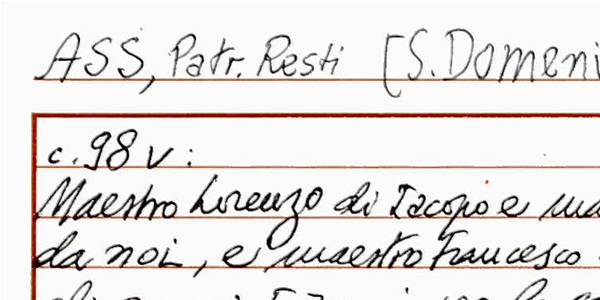 ASS, Patr. Resti [S. Domeni
c. 98 v:
Maestro Lorenzo di Iacopo e ma
da noi, e maestro Francesco